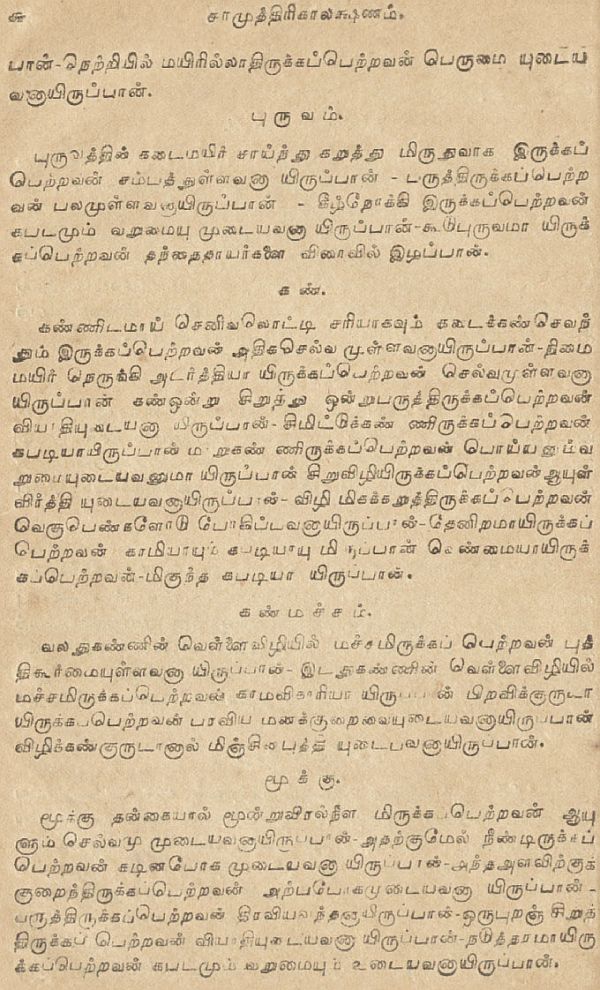 ௬ சாமுத்திரிகாலக்ஷணம்.
பான்-நெற்றியில் மயிரில்லாதிருக்கப்பெற்றவன் பெருமை யுடைய
வனாயிருப்பான்.
புருவம்.
புருவத்தின் கடைமயிர் சாய்ந்து கறுத்து மிருதுவாக இருக்கப்
பெற்றவன் சம்பத்துள்ளவனா யிருப்பான் - பருத்திருக்கப்பெற்ற
வன் பலமுள்ளவனாயிருப்பான் - கீழ்நோக்கி இருக்கப்பெற்றவன்
கபடமும் வறுமையு முடையவனா யிருப்பான்-கூடுபுருவமா யிருக்
கப்பெற்றவன் தந்தைதாயர்களை விரைவில் இழப்பான்.
கண்.
கண்ணிடமாய் செவ்வலொட்டி சரியாகவும் கடைக்கண்செவந்
தும் இருக்கப்பெற்றவன் அதிகசெல்வ முள்ளவனாயிருப்பான்-நிமை
மயிர் நெருங்கி அடர்த்தியா யிருக்கப்பெற்றவன் செல்வமுள்ளவனா
யிருப்பான் கண்ஒன்று சிறுத்து ஒன்றுபருத்திருக்கப்பெற்றவன்
வியாதியுடையனா யிருப்பான்- சிமிட்டுக்கண் ணிருக்கப்பெற்றவன்
கபடியாயிருப்பான் மாறுகண் ணிருக்கப்பெற்றவன் பொய்யனும்வ
றுமையுடையவனுமா யிருப்பான் சிறுவிழியிருக்கப்பெற்றவன்ஆயுள்
விர்த்தி யுடையவனாயிருப்பான்- விழி மிகக்கறுத்திருக்கப்பெற்றவன்
வெகுபெண்களோடு போகிப்பவனாயிருப்பான்-தேனிறமாயிருக்கப்
பெற்றவன் காமியாயும் கபடியாயு மிருப்பான் வெண்மையாயிருக்
கப்பெற்றவன்-மிகுந்த கபடியா யிருப்பான்.
கண்மச்சம்.
வலதுகண்ணின் வெள்ளைவிழியில் மச்சமிருக்கப் பெற்றவன் புத்
திகூர்மையுள்ளவனா யிருப்பான்- இடதுகண்ணின் வெள்ளைவிழியில்
மச்சமிருக்கப்பெற்றவன் காமவிகாரியா யிருப்பான் பிறவிக்குருடா
யிருக்கப்பெற்றவன் பாவிய மனக்குறைவையுடையவனாயிருப்பான்
விழிக்கண்குருடானால் மிஞ்சினபுத்தி யுடையவனாயிருப்பான்.
மூக்கு.
மூக்கு தன்கையால் மூன்றுவிரல்நீள மிருக்கப்பெற்றவன் ஆயு
ளும் செல்வமு முடையவனாயிருப்பான்-அதற்குமேல் நீண்டிருக்கப்
பெற்றவன் கடினபோக முடையவனா யிருப்பான்-அந்தஅளவிற்குக்
குறைந்திருக்கப்பெற்றவன் அற்பபோகமுடையவனா யிருப்பான் -
பருத்திருக்கப்பெற்றவன் திரவியவந்தனாயிருப்பான்-ஒருபுறஞ் சிறுத்
திருக்கப் பெற்றவன் வியாதியுடையவனா யிருப்பான்-நடுத்தரமாயிரு
க்கப்பெற்றவன் கபடமும் வறுமையும் உடையவனாயிருப்பான்.